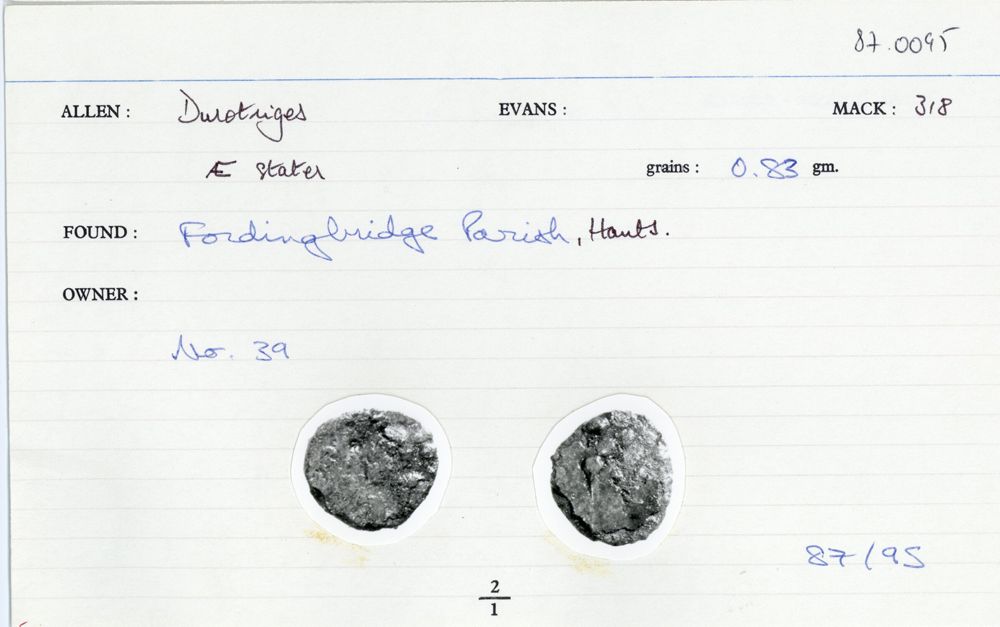 87.0095
ALLEN : Durotriges EVANS : MACK : 318
Æ Stater grains : 0.83 gm.
FOUND : Fordingbridge Parish, Hants.
OWNER :
No. 39
87/95
2
1